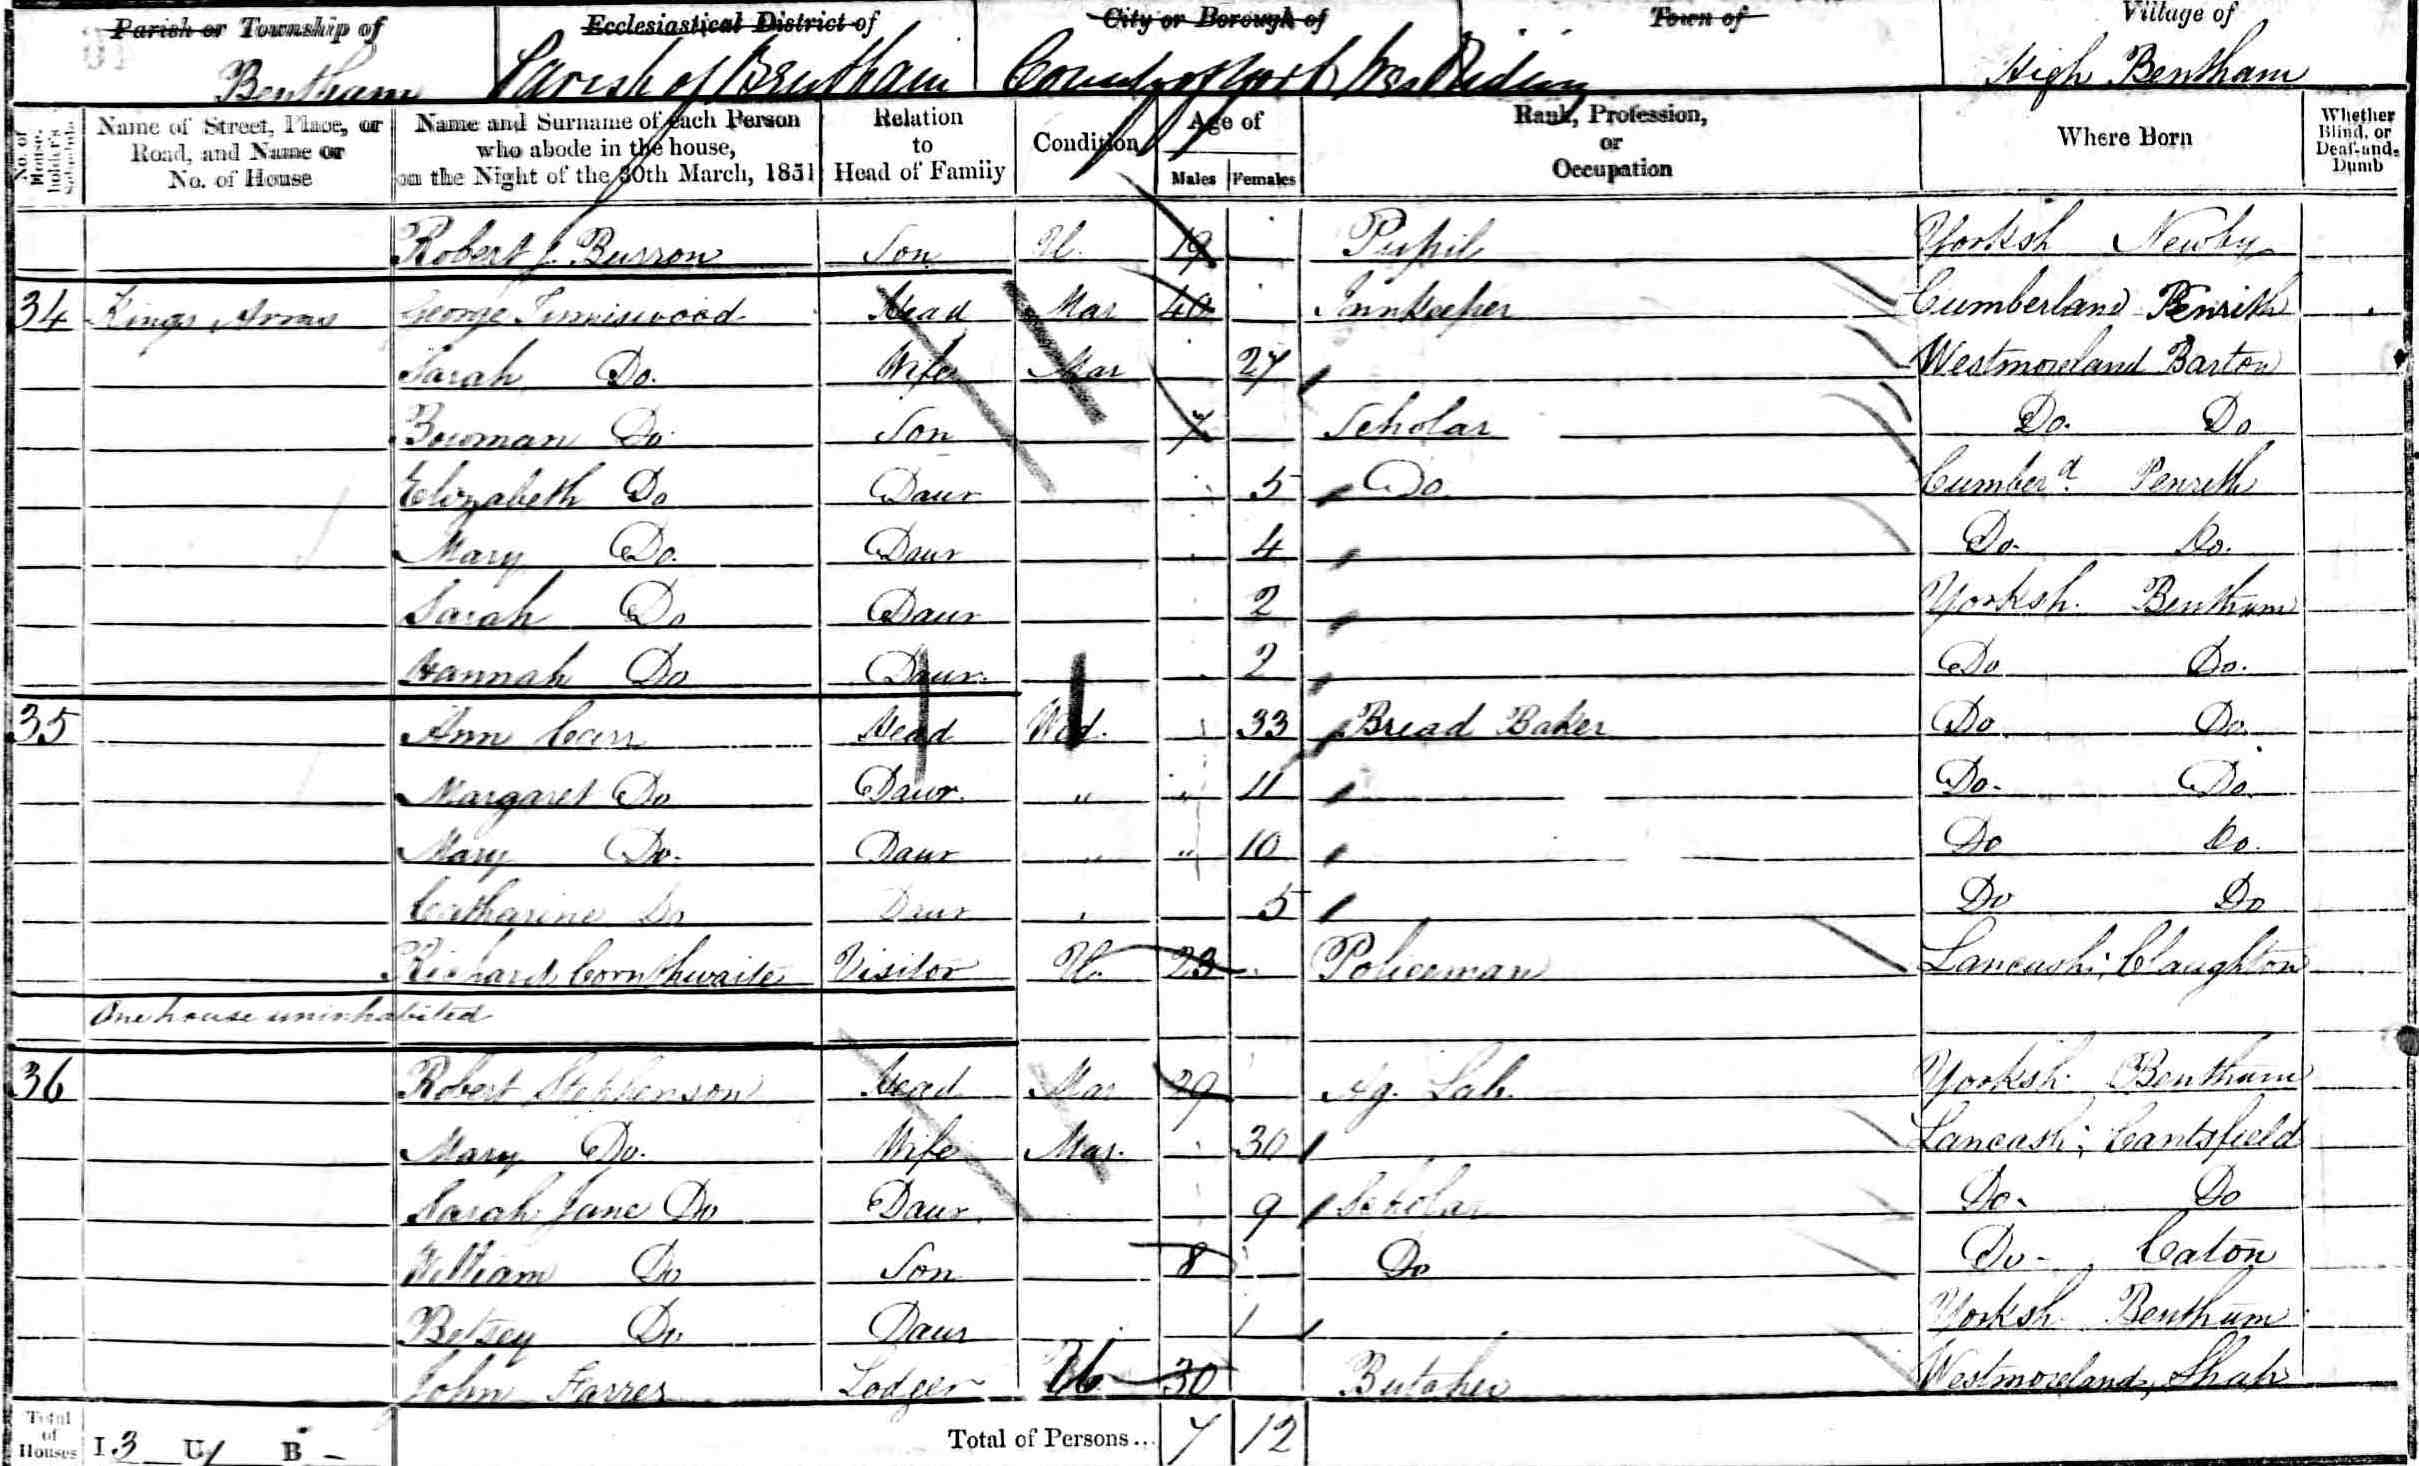 Parish or Township of Ecclesiastical District of City or Borough of Town of Village of
Bentham Parish of Bentham County of York West Riding High Bentham
No. of House-holder's Schedule Name of Street, Place, or Road, and Name or No. of House Name and Surname of each Person who abode in the house, on the Night of the 30th March, 1851 Relation to Head of Family Condition Age of Males Females Rank, Profession, or Occupation Where Born Whether Blind, or Deaf-and-Dumb
Robert J. Burron Son U. 19 Pupil Yorksh Newby
34 Kings Arms George Tinniswood Head Mar 40 Innkeeper Cumberland Penrith
Sarah Do. Wife Mar 27 Westmoreland Barton
Bowman Do. Son 7 Scholar Do. Do
Elizabeth Do Daur 5 Do Cumberd. Penrith
Mary Do. Daur 4 Do. Do.
Sarah Do Daur 2 Yorksh. Bentham
Hannah Do Daur. 2 Do Do.
35 Ann Carr Head Wid. 33 Bread Baker Do Do.
Margaret Do Daur. " " 11 Do. Do.
Mary Do. Daur " " 10 Do Do.
Catharine Do Daur 5 Do Do
Richard Cornthwaite Visitor U. 23 Policeman Lancash: Claughton
One house uninhabited
36 Robert Stephenson Head Mar 29 Ag. Lab. Yorksh. Bentham
Mary Do. Wife Mar. 30 Lancash: Cantsfield
Sarah Jane Do Daur. 9 Scholar Do. Do
William Do Son 8 Do Do - Caton
Betsey Do Daur 1 Yorksh. Bentham
John Farrer Lodger U 30 Butcher Westmoreland, Shap
Total of Houses I 3 U 1 B - Total of Persons... 7 12